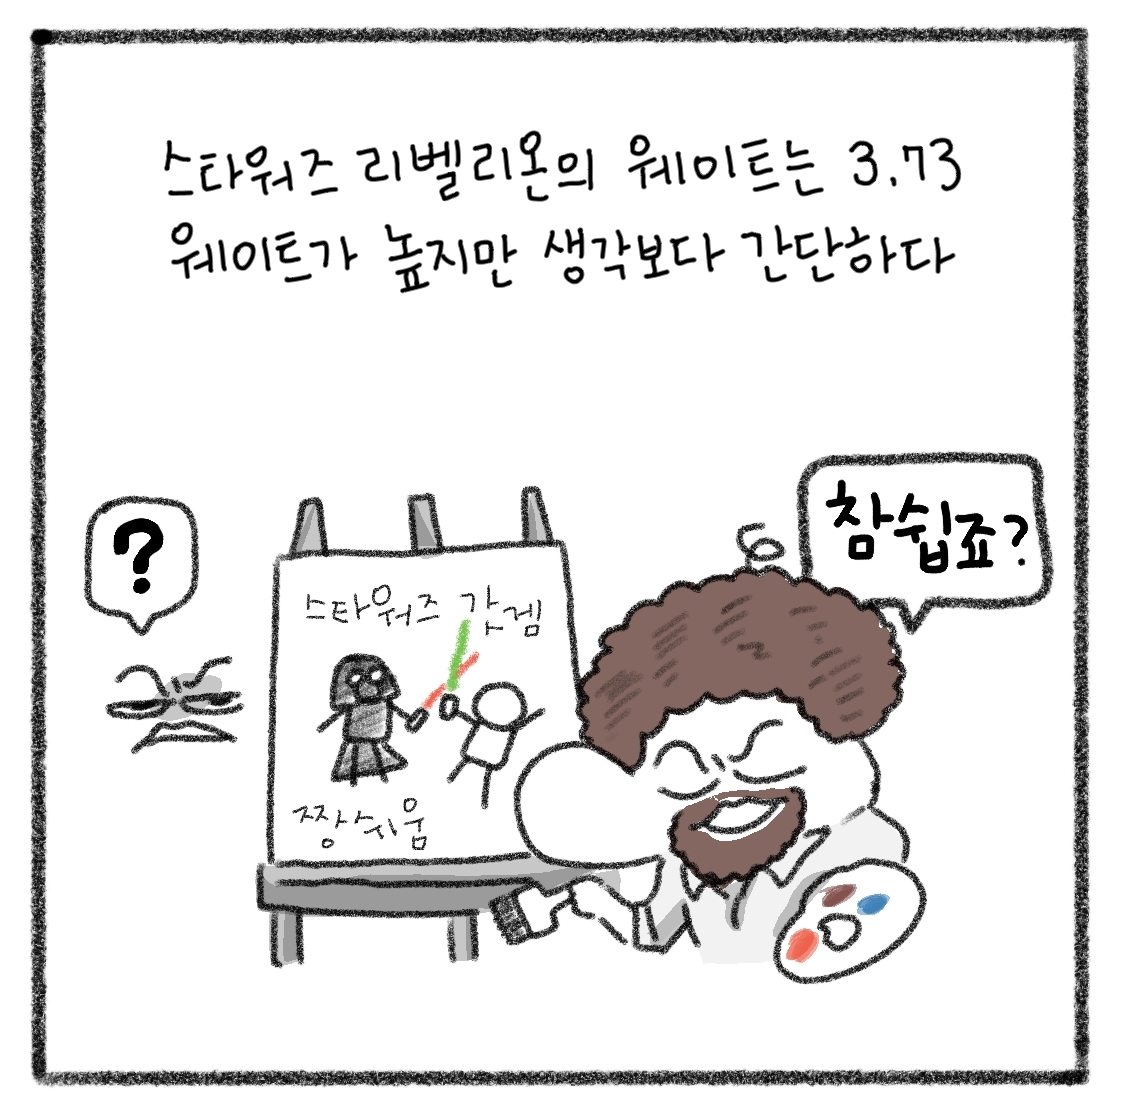 스타워즈 리벨리온의 웨이트는 3.73
웨이트가 높지만 생각보다 간단하다
?
참쉽죠?
스타워즈 갓겜
짱쉬움